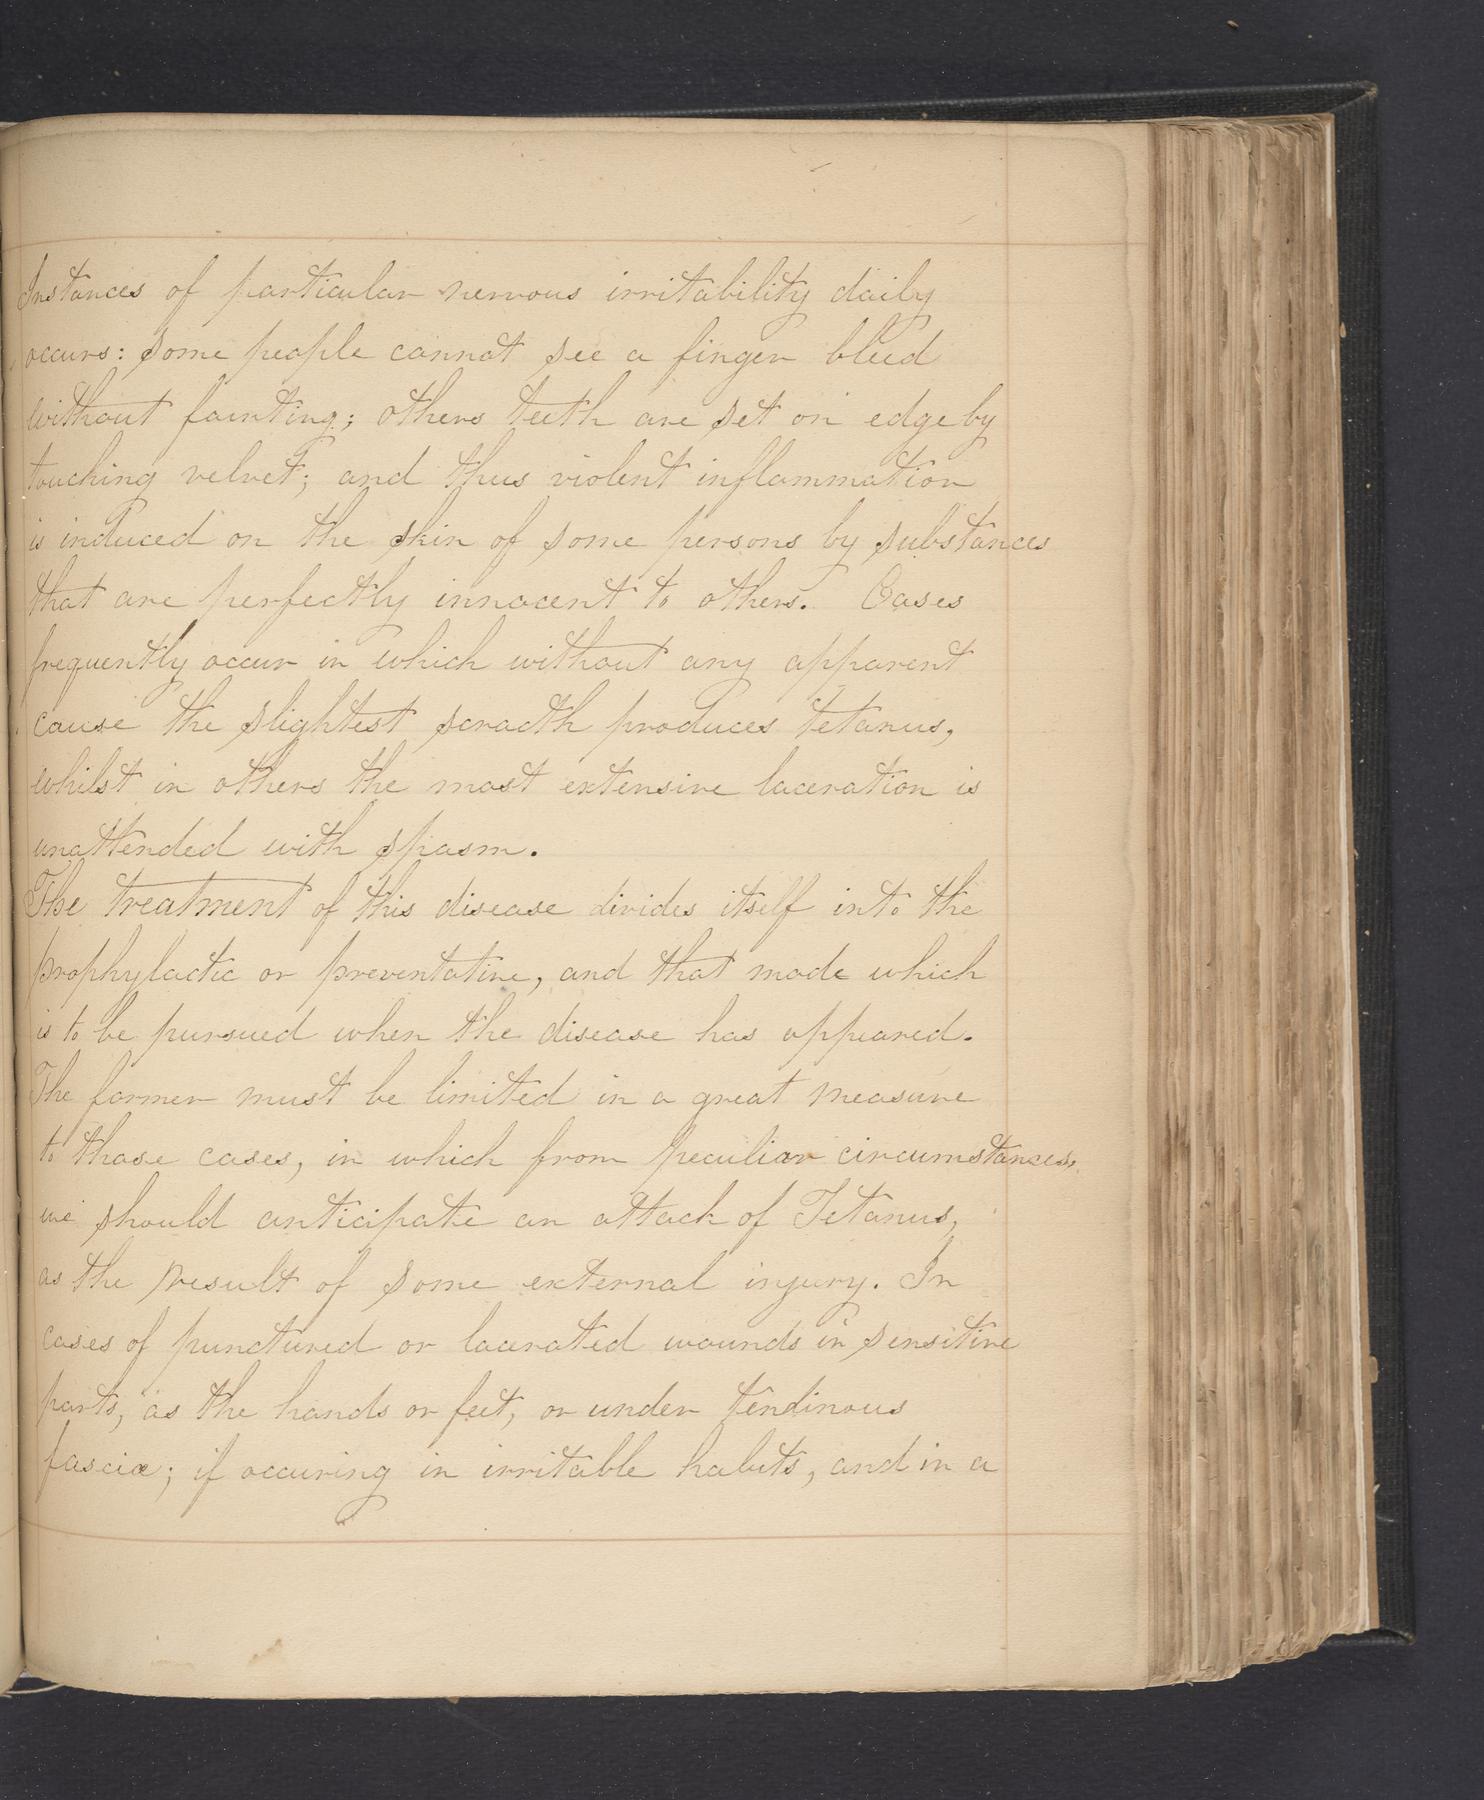 Instances of particular nervous irritability daily
occurs: some people cannot see a finger bleed
without fainting; others teeth are set on edge by
touching velvet; and thus violent inflammation
is induced on the skin of some persons by substances
that are perfectly innocent to others. Cases
frequently occur in which without any apparent
cause the slightest scracth produces tetanus,
whilst in others the most extensive laceration is
unattended with spasm.
The treatment of this disease divides itself into the
prophylactic or preventative, and that mode which
is to be pursued when the disease has appeared.
The former must be limited in a great measure
to those cases, in which from peculiar circumstances,
we should anticipate an attack of Tetanus,
as the result of some external injury. In
cases of punctured or lacerated wounds in sensitive
parts, as the hands or feet, or under tendinous
fasciæ; if occuring in irritable habits, and in a